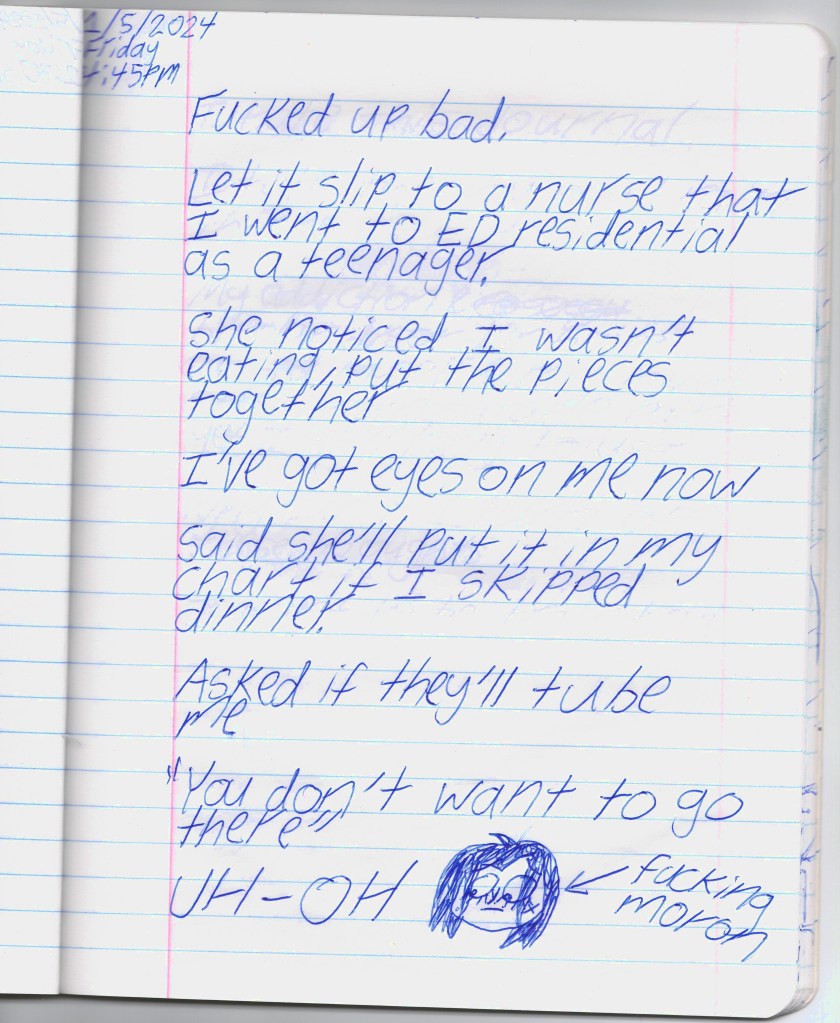 1/5/2024
Friday
4:45PM
Fucked up bad.
Let it slip to a nurse that
I went to ED residential
as a teenager.
She noticed I wasn't
eating, put the pieces
together
I've got eyes on me now
Said she'll put it in my
chart if I skipped
dinner.
Asked if they'll tube
me
"You don't want to go
there"
UH-OH
fucking
moron